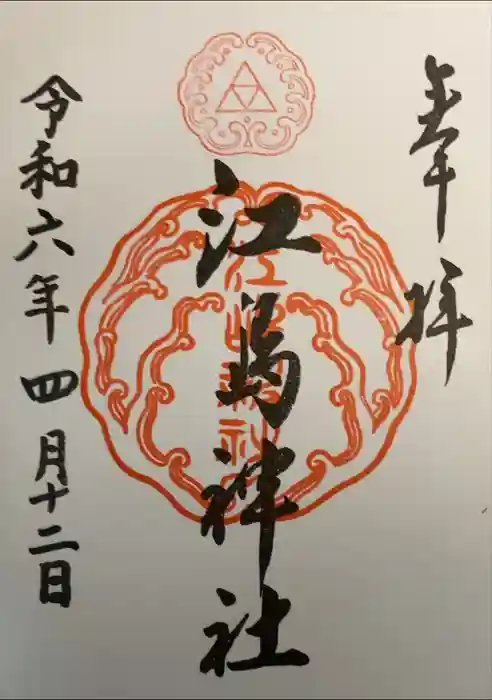 奉拝
江島神社
令和六年四月十二日